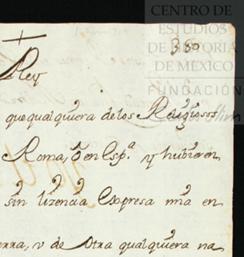 CENTRO DE
ESTUDIOS
DE HISTORIA
DE MEXICO
FUNDACIÓN
380
Rey
que qualquiera de los Religiosos
Roma, ô en Espª. y hubieren
sin lizencia Expresa mia en
erra, v de Otra qualquiera na